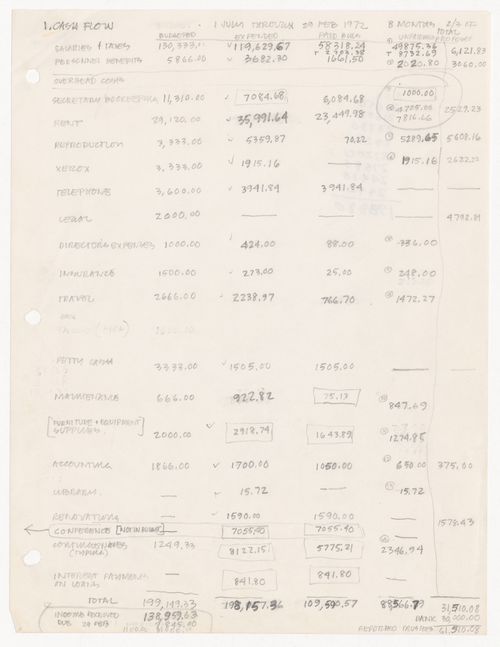 1. CASH FLOW 1 JULY THROUGH 29 FEB 1972 8 MONTHS 2/3 OF TOTAL
BUDGETED EXPENDED PAID BILLS UNPAID
SALARIES & TAXES 130,333.00 119,629.67 58,318.24 49875.36 6,121.83
PERSONNEL BENEFITS 5866.00 3682.30 1661.50 2020.80 3060.00
OVERHEAD COSTS
1000.00
SECRETARY BOOKKEEPING 11,310.00 7084.68 6,084.68 4725.00 2529.23
RENT 29,120.00 35,991.64 23,449.98 7816.66
REPRODUCTION 3,333.00 5359.87 70.22 5289.65 5608.16
XEROX 3,333.00 1915.16 1915.16 2622.00
TELEPHONE 3,600.00 3941.84 3941.84
LEGAL 2000.00 4792.84
DIRECTORS EXPENSES 1000.00 424.00 88.00 336.00
INSURANCE 1500.00 273.00 25.00 248.00
TRAVEL 2666.00 2238.97 766.70 1472.27
PETTY CASH 3333.00 1505.00 1505.00
MAINTENANCE 666.00 922.82 75.13 847.69
[FURNITURE + EQUIPMENT]
SUPPLIES 2000.00 2918.74 1643.89 1274.85
ACCOUNTING 1866.00 1700.00 1050.00 650.00 375.00
15.72 15.72
RENOVATIONS 1590.00 1590.00
1578.43
CONFERENCE [NOT IN BUDGET] 7055.40 7055.40
CONTINGENCIES 1249.33 8122.15 5775.21 2346.94
INTEREST PAYMENTS 841.80 841.80
ON LOANS
TOTAL 199,149.33 198,157.36 109,590.57 88566.79 31,510.08
INCOME RECEIVED 138,959.63 BANK 30,000.00
DUE 29 FEB 61,510.08